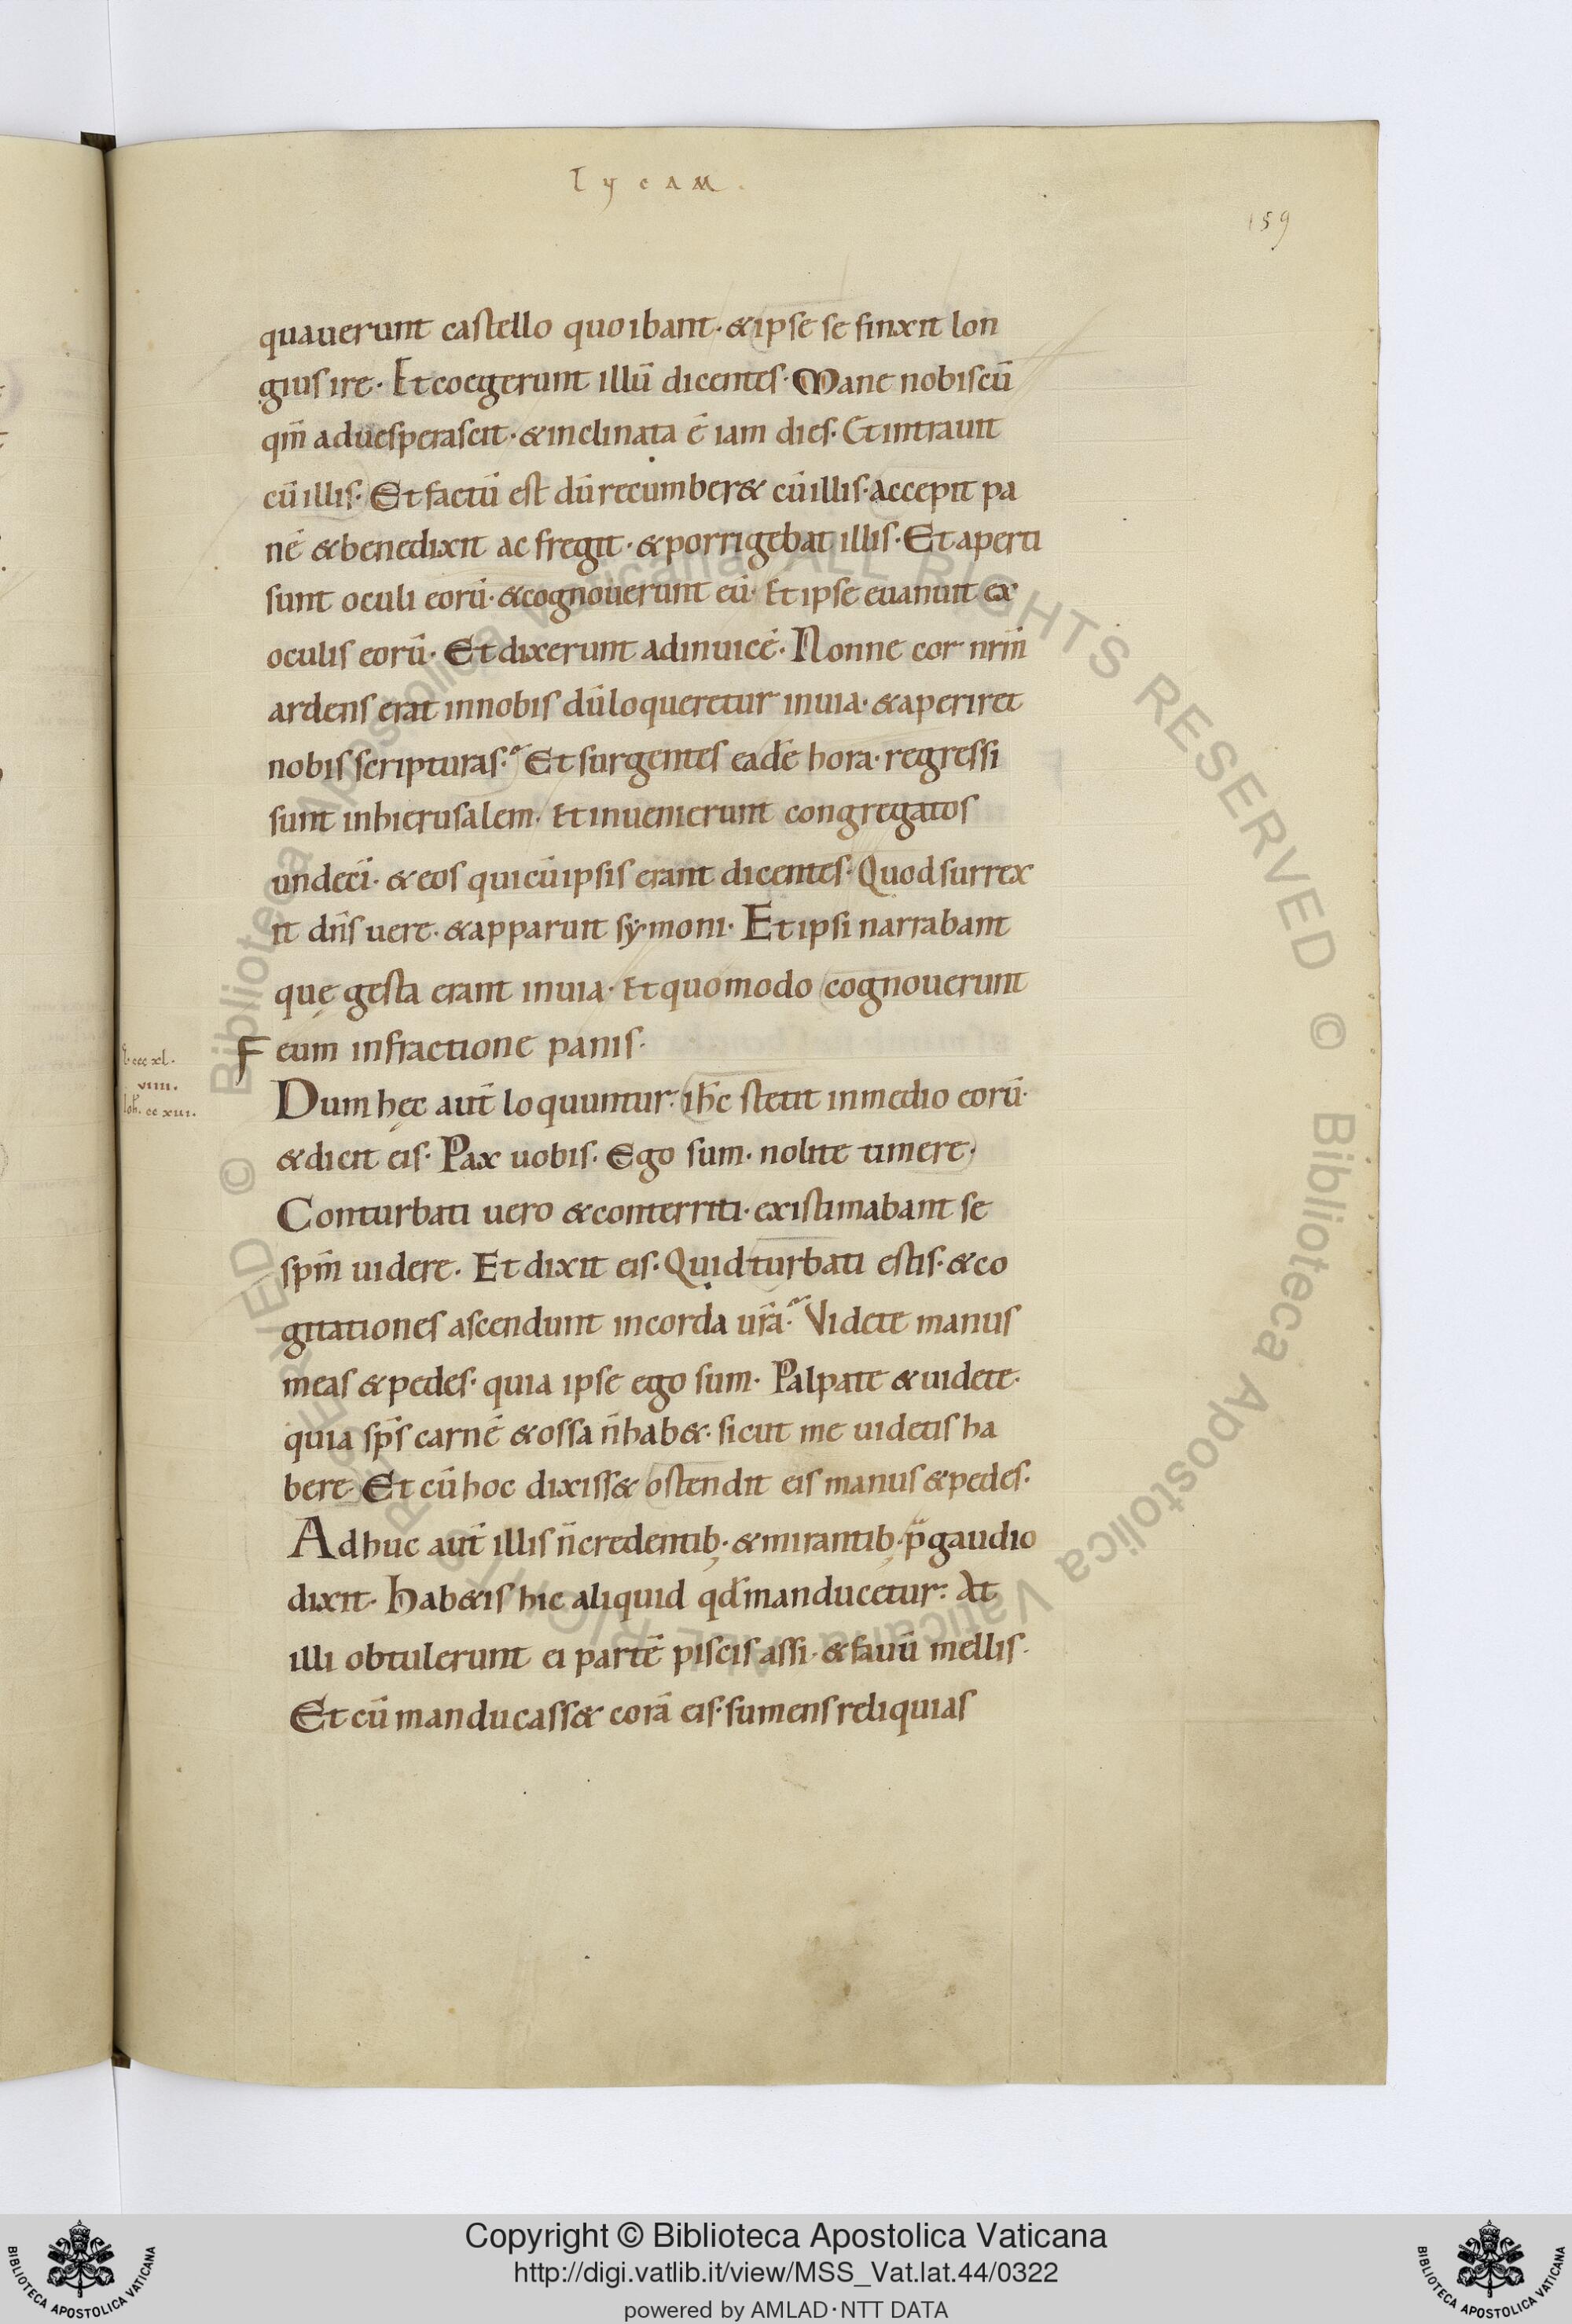 lycam.
159
quauerunt castello quo ibant· & ipse se finxit lon
gius ire· Et coegerunt illū dicentes· Mane nobiscū
qm̄ aduesperascit· & inclinata ē iam dies· Et intrauit
cū illis· Et factū est dū recumber& cū illis· accepit pa
nē & benedixit ac fregit· & porrigebat illis· Et aperti
sunt oculi eorū· & cognouerunt eū· Et ipse euanuit ex
oculis eorū· Et dixerunt adinuicē· Nonne cor nrm̄
ardens erat in nobis dū loqueretur in uia· & aperiret
nobis scripturas· Et surgentes eadē hora· regressi
sunt in hierusalem· Et inuenierunt congregatos
undecī· & eos qui cū ipsis erant dicentes· Quod surrex
it dn̄s uere· & apparuit symoni· Et ipsi narrabant
quę gesta erant in uia· Et quomodo cognouerunt
F eum in fractione panis·
ccc xl.
viiii.
Ioh̄. cc xiii.
Dum hęc aut̄ loquuntur· ih̄c stetit in medio eorū·
& dicit eis· Pax uobis· Ego sum· nolite timere·
Conturbati uero & conterriti· existimabant se
spm̄ uidere· Et dixit eis· Quid turbati estis· & co
gitationes ascendunt in corda ur̄a· Videte manus
meas & pedes· quia ipse ego sum· Palpate & uidete·
quia sp̄s carnē & ossa n̄ hab&· sicut me uidetis ha
bere· Et cū hoc dixiss& ostendit eis manus & pedes·
Adhuc aut̄ illis n̄ credentib; & mirantib; p̄ gaudio
dixit· Hab&is hic aliquid qd̄ manducetur· At
illi obtulerunt ei partē piscis assi· & fauū mellis·
Et cū manducass& corā eis· sumens reliquias
© Biblioteca Apostolica Vaticana ALL RIGHTS RESERVED © Biblioteca Apostolica Vaticana ALL RIGHTS RESERVED
Copyright © Biblioteca Apostolica Vaticana
http://digi.vatlib.it/view/MSS_Vat.lat.44/0322
powered by AMLAD·NTT DATA
BIBLIOTECA APOSTOLICA VATICANA
BIBLIOTECA APOSTOLICA VATICANA